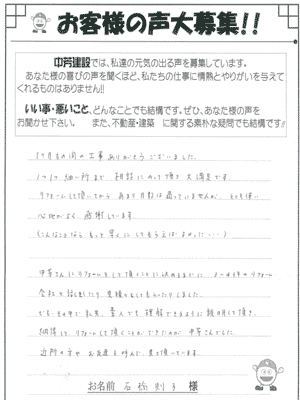 お客様の声大募集!!
中芳建設では、私達の元気の出る声を募集しています。
あなた様の喜びの声を聞くほど、私たちの仕事に情熱とやりがいを与えて
くれるものはありません!!
いい事・悪いこと、どんなことでも結構です。ぜひ、あなた様の声を
お聞かせ下さい。 また、不動産・建築 に関する素朴な疑問でも結構です!!
1ヶ月もの間の工事ありがとうございました。
1つ1つ細い所まで 相談にのって頂き 大満足です。
リフォームして頂いてから あまり月日は過っていませんが、とても使い
心地がよく、感謝しています。
(こんなことなら もっと早くに してもらえばよかった・・・)
中芳さんにリフォームをして頂くことに決めるまでに、 のリフォーム
会社と話をしたり、見積もりをしてもらったりしました。
でも、その中で私共、素人でも 理解できるように説明して頂き、
納得して、リフォームして頂くことができたのが 中芳さんでした。
近所の方や お友達を呼んで、見て頂いています。
お名前 石橋 様